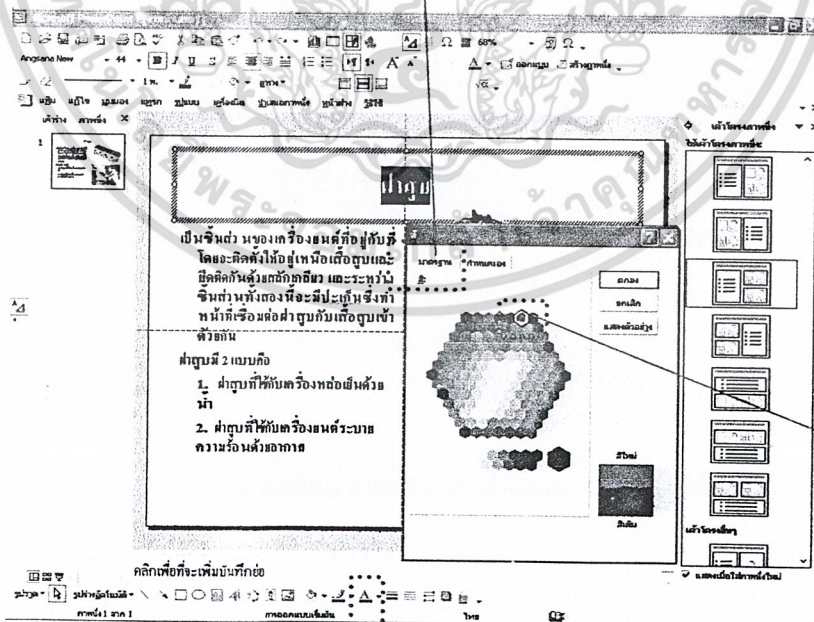 68%
Angsana New 44 B I U S A A ออกแบบ สร้างภาพนิ่ง
1 พ.
แฟ้ม แก้ไข มุมมอง แทรก รูปแบบ เครื่องมือ นำเสนอภาพนิ่ง หน้าต่าง วิธีใช้
เค้าร่าง ภาพนิ่ง
1
ฝาสูบ
เป็นชิ้นส่วนของเครื่องยนต์ที่อยู่กับที่
โดยจะติดตั้งให้อยู่เหนือเสื้อสูบและ
ยึดติดกันด้วยสลักเกลียว และระหว่าง
ชิ้นส่วนทั้งสองนี้จะมีปะเก็นซึ่งทำ
หน้าที่เชื่อมต่อฝาสูบกับเสื้อสูบเข้า
ด้วยกัน
ฝาสูบมี 2 แบบคือ
1. ฝาสูบที่ใช้กับเครื่องหล่อเย็นด้วย
น้ำ
2. ฝาสูบที่ใช้กับเครื่องยนต์ระบาย
ความร้อนด้วยอากาศ
สี
มาตรฐาน กำหนดเอง
สี:
ตกลง
ยกเลิก
แสดงตัวอย่าง
สีใหม่
สีเดิม
เค้าโครงภาพนิ่ง
ใช้เค้าโครงภาพนิ่ง:
เค้าโครงอื่นๆ
แสดงเมื่อใส่ภาพนิ่งใหม่
คลิกเพื่อที่จะเพิ่มบันทึกย่อ
รูปวาด รูปร่างอัตโนมัติ
ภาพนิ่ง 1 จาก 1 การออกแบบเริ่มต้น ไทย